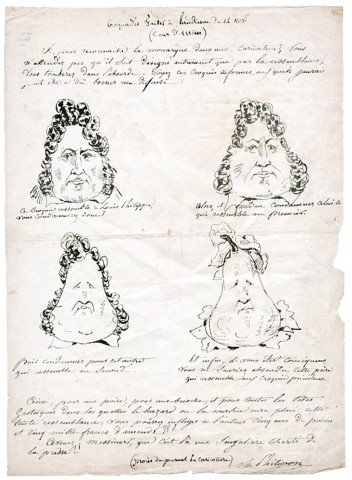 Croquades faites à l'audience du 14 nov.
(Cour d'Assises)
Si, pour reconnaître le monarque dans une caricature, vous
n'attendez pas qu'il soit désigné autrement que par la ressemblance,
vous tomberez dans l'absurde. Voyez ces croquis informes, auxquels j'aurais
peut-être dû borner ma défense.
Ce croquis ressemble à Louis Philippe,
vous condamnerez donc?
Alors il faudra condamner celui-ci
qui ressemble au premier.
Puis condamner pour cet autre
qui ressemble au second.
Et enfin, si vous êtes conséquens,
vous ne sauriez absoudre cette poire
qui ressemble aux croquis précédens.
Ainsi, pour une poire, pour une brioche, et pour toutes les têtes
grotesques dans lesquelles le hazard ou la malice aura placé cette
triste ressemblance, vous pourrez infliger à l'auteur cinq ans de prison
et cinq mille francs d'amende!!
Avouez, Messieurs, que c'est là une singulière liberté de
la presse!!
(procès du journal la caricature)
Ch. Philipon